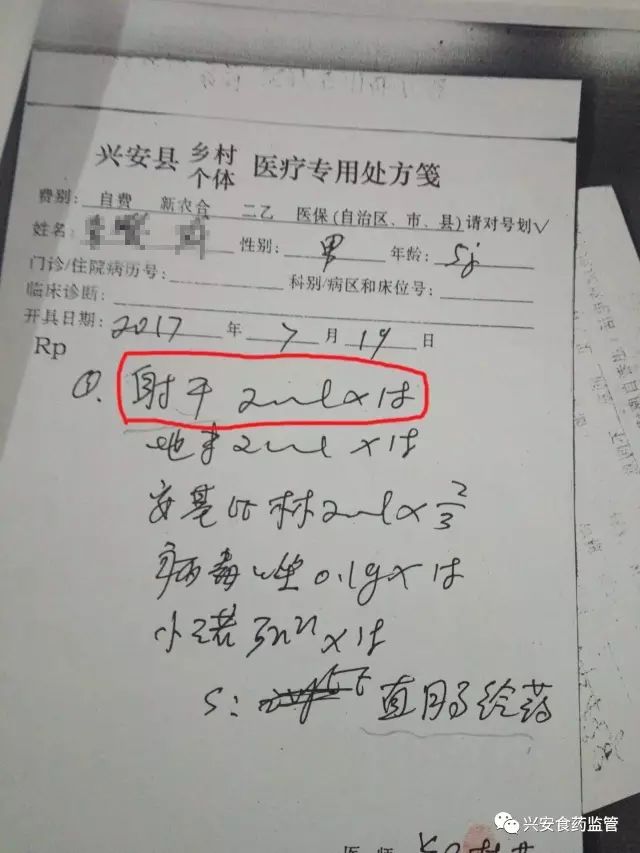 兴安县 乡村 个体 医疗专用处方笺
费别: 自费 新农合 二乙 医保(自治区、市、县)请对号划√
姓名: 性别: 男 年龄: 5j
门诊/住院病历号: 科别/病区和床位号:
临床诊断:
开具日期: 2017 年 7 月 19 日
Rp
①. 射干 2ml×1支
地 2ml ×1支
安基比林 2ml×2/3
病毒唑 0.1g×1支
小诺 ×1支
S: 直肠给药
医师
兴安食药监管